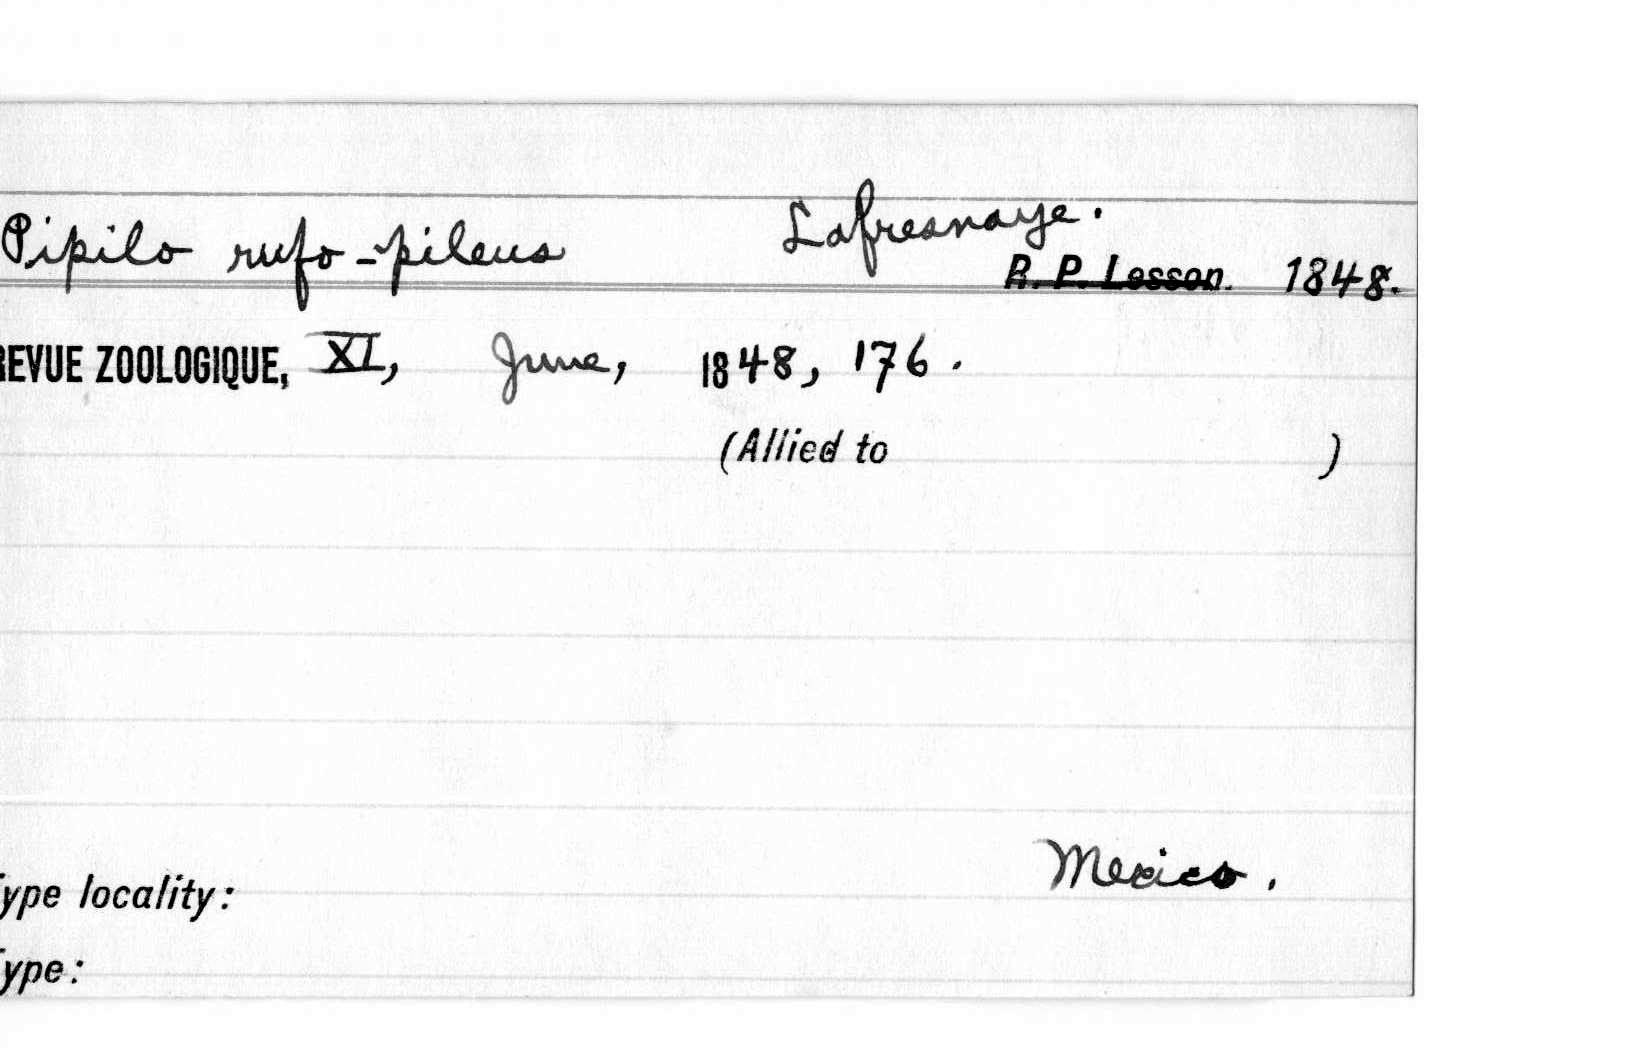 Pipilo rufo-pileus Lafresnaye.
R. P. Lesson. 1848.
REVUE ZOOLOGIQUE, XI, June, 1848, 176.
(Allied to )
Mexico.
Type locality:
Type: